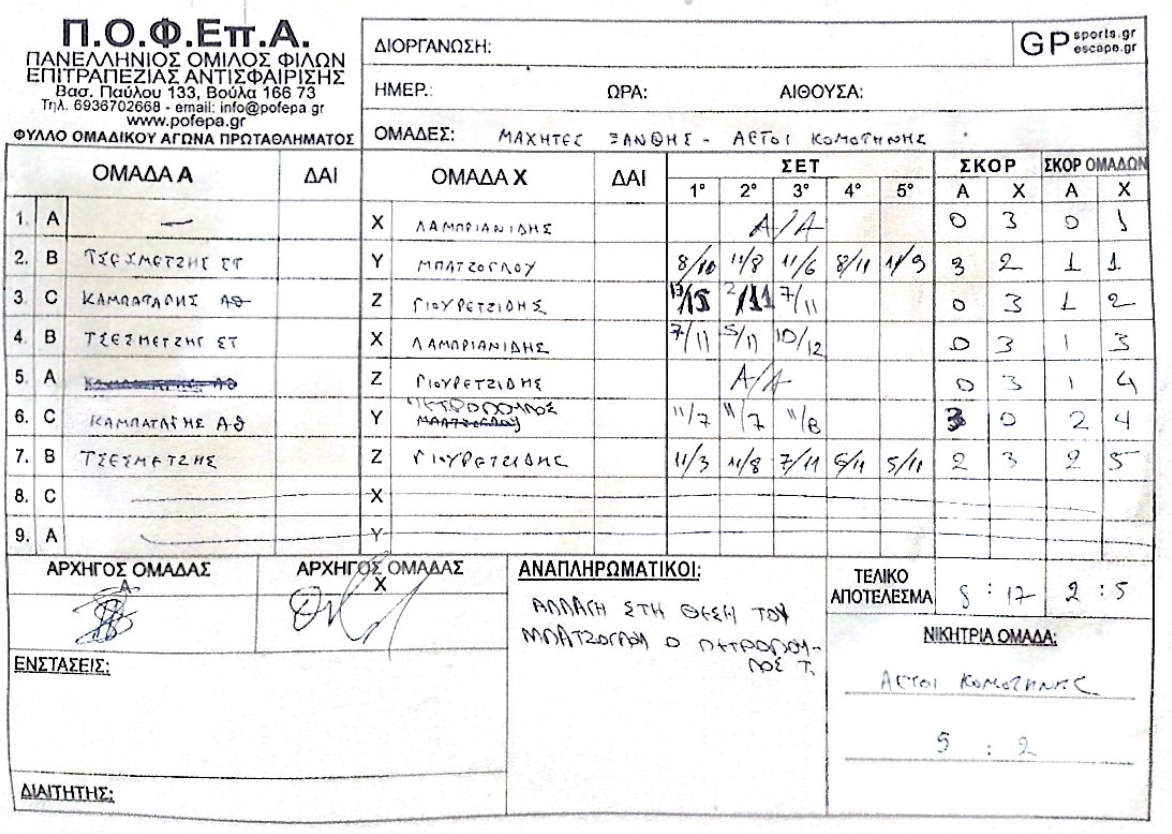 Π.Ο.Φ.Επ.Α.
ΠΑΝΕΛΛΗΝΙΟΣ ΟΜΙΛΟΣ ΦΙΛΩΝ
ΕΠΙΤΡΑΠΕΖΙΑΣ ΑΝΤΙΣΦΑΙΡΙΣΗΣ
Βασ. Παύλου 133, Βούλα 166 73
Τηλ. 6936702668 - email: info@pofepa gr
www.pofepa.gr
ΦΥΛΛΟ ΟΜΑΔΙΚΟΥ ΑΓΩΝΑ ΠΡΩΤΑΘΛΗΜΑΤΟΣ
ΔΙΟΡΓΑΝΩΣΗ:
GP sports.gr escape.gr
ΗΜΕΡ.: ΩΡΑ: ΑΙΘΟΥΣΑ:
ΟΜΑΔΕΣ: ΜΑΧΗΤΕΣ ΞΑΝΘΗΣ - ΑΕΤΟΙ ΚΟΜΟΤΗΝΗΣ
ΟΜΑΔΑ Α ΔΑΙ ΟΜΑΔΑ Χ ΔΑΙ ΣΕΤ ΣΚΟΡ ΣΚΟΡ ΟΜΑΔΩΝ
1° 2° 3° 4° 5° Α Χ Α Χ
1. A — X ΛΑΜΠΡΙΑΝΙΔΗΣ Α/Α 0 3 0 1
2. B ΤΣΕΣΜΕΤΖΗΣ ΣΤ Y ΜΠΑΤΖΟΓΛΟΥ 8/10 11/8 11/6 8/11 11/9 3 2 1 1
3. C ΚΑΜΠΑΤΑΡΗΣ ΑΘ Z ΓΙΟΥΡΕΤΖΙΔΗΣ 13/15 2/11 7/11 0 3 1 2
4. B ΤΣΕΣΜΕΤΖΗΣ ΣΤ X ΛΑΜΠΡΙΑΝΙΔΗΣ 7/11 5/11 10/12 0 3 1 3
5. A Z ΓΙΟΥΡΕΤΖΙΔΗΣ Α/Α 0 3 1 4
6. C ΚΑΜΠΑΤΑΡΗΣ ΑΘ Y ΠΕΤΡΟΠΟΥΛΟΣ ΜΠΑΤΖΟΓΛΟΥ 11/7 11/7 11/8 3 0 2 4
7. B ΤΣΕΣΜΕΤΖΗΣ Z ΓΙΟΥΡΕΤΖΙΔΗΣ 11/3 11/8 7/11 5/11 2 3 2 5
8. C X
9. A Y
ΑΡΧΗΓΟΣ ΟΜΑΔΑΣ Α
ΑΡΧΗΓΟΣ ΟΜΑΔΑΣ Χ
ΑΝΑΠΛΗΡΩΜΑΤΙΚΟΙ:
ΑΛΛΑΓΗ ΣΤΗ ΘΕΣΗ ΤΟΥ
ΜΠΑΤΖΟΓΛΟΥ Ο ΠΕΤΡΟΠΟΥ-
ΛΟΣ Τ.
ΤΕΛΙΚΟ
ΑΠΟΤΕΛΕΣΜΑ 8 : 17 2 : 5
ΝΙΚΗΤΡΙΑ ΟΜΑΔΑ:
ΑΕΤΟΙ ΚΟΜΟΤΗΝΗΣ
5 : 2
ΕΝΣΤΑΣΕΙΣ:
ΔΙΑΙΤΗΤΗΣ: